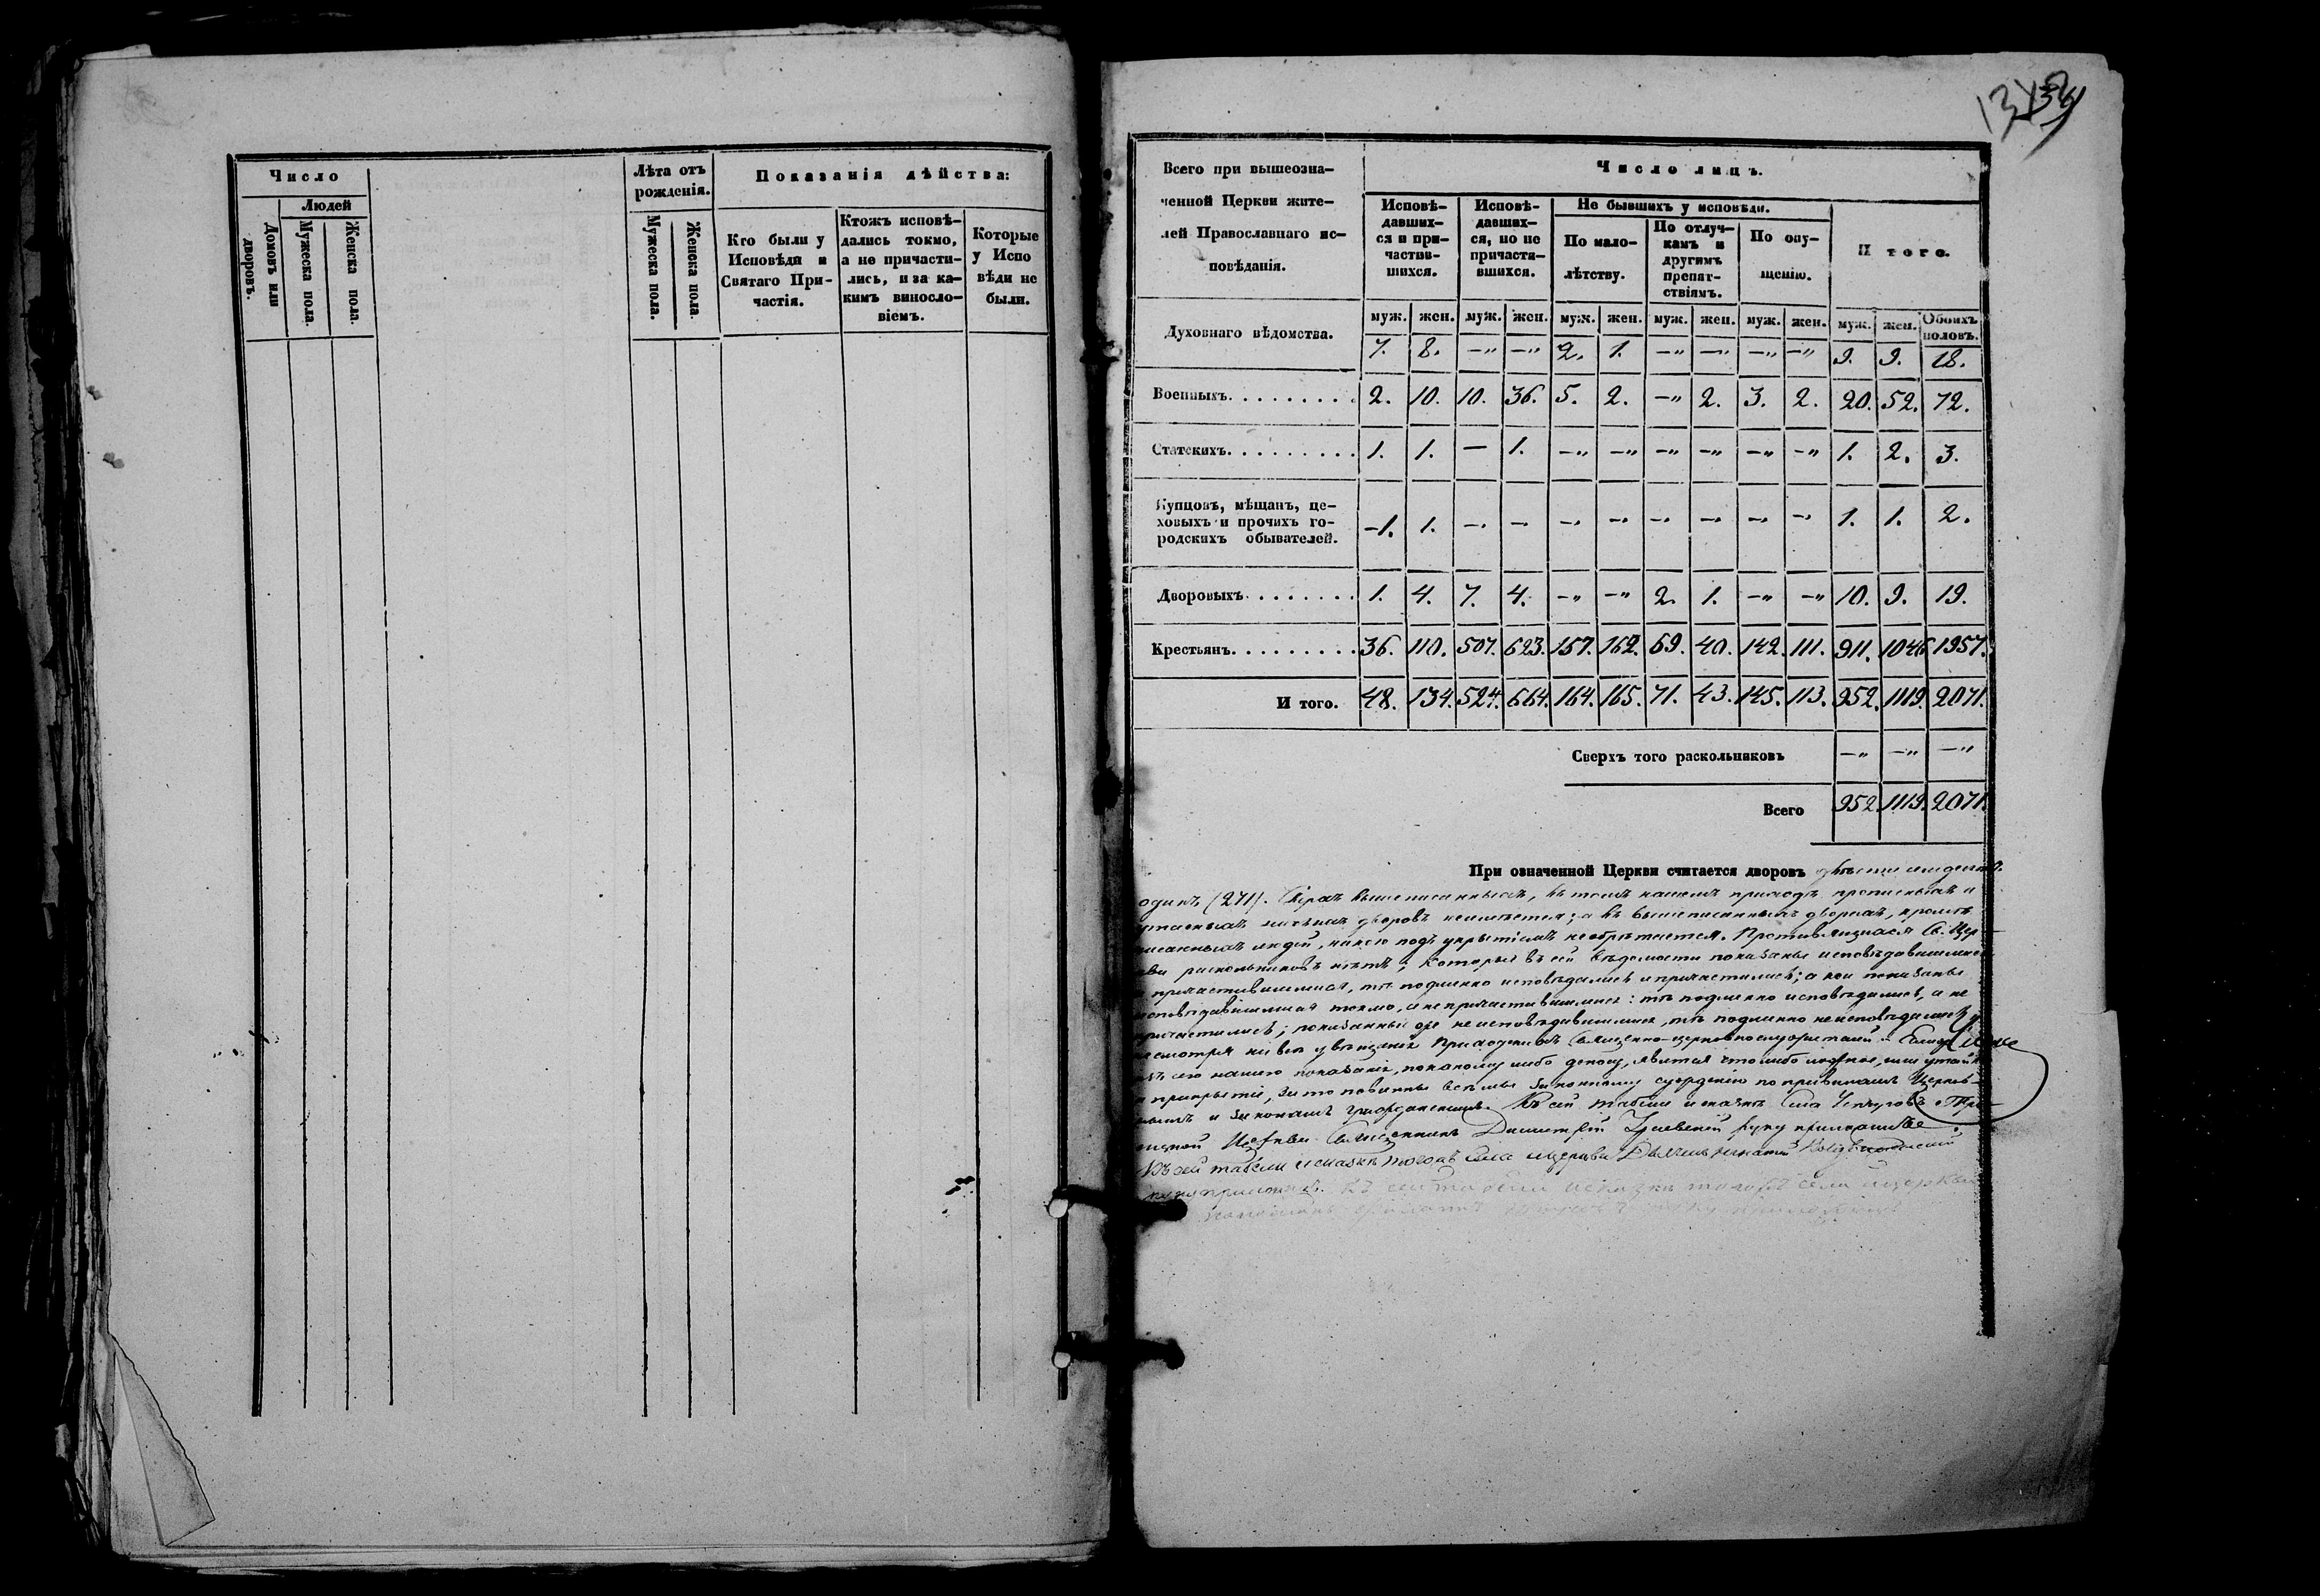 Число
Людей
Домовъ или дворовъ.
Мужеска пола.
Женска пола.
Лѣта отъ рожденія.
Мужеска пола.
Женска пола.
Показанія дѣйства:
Кто были у Исповѣди и Святаго Причастія.
Ктожъ исповѣдались токмо, а не причастились, и за какимъ винословіемъ.
Которые у Исповѣди не были.
Всего при вышеозна-
ченной Церкви жите-
лей Православнаго ис-
повѣданія.
Число лицъ.
Исповѣ-
давших-
ся и при-
частив-
шихся.
Исповѣ-
давших-
ся, но не
причасти-
вшихся.
Не бывшихъ у исповѣди.
По мало-
лѣтству.
По отлуч-
камъ и
другимъ
препят-
ствіямъ.
По опу-
щенію.
И того.
муж. жен. муж. жен. муж. жен. муж. жен. муж. жен. муж. жен. Обоихъ половъ.
Духовнаго вѣдомства. 7. 8. –" –" 2. 1. –" –" –" –" 9. 9. 18.
Военныхъ. . . . . . . . . 2. 10. 10. 36. 5. 2. –" 2. 3. 2. 20. 52. 72.
Статскихъ. . . . . . . . . 1. 1. – 1. –" –" –" –" –" –" 1. 2. 3.
Купцовъ, мѣщанъ, це-
ховыхъ и прочихъ го-
родскихъ обывателей. –1. 1. –. –. –. –. –. –. –. –. 1. 1. 2.
Дворовыхъ. . . . . . . 1. 4. 7. 4. –" –" 2. 1. –" –" 10. 9. 19.
Крестьянъ. . . . . . . . . 36. 110. 507. 623. 157. 162. 69. 40. 142. 111. 911. 1046 1957.
И того. 48. 134. 524. 664. 164. 165. 71. 43. 145. 113. 952. 1119. 2071.
Сверхъ того раскольниковъ –" –" –"
Всего 952. 1119. 2071.
При означенной Церкви считается дворовъ двѣсти
одинъ (271). Сверхъ вышеписанныхъ, въ томъ нашемъ приходѣ прописныхъ и
дворовъ неимѣется; а въ вышеписанныхъ дворахъ, кромѣ
людей, никого подъ укрытіемъ необрѣтается. Противящихся Св. Цер-
раскольниковъ нѣтъ; которые въ сей вѣдомости показаны исповѣдавшимися
причастившимися, тѣ подлинно исповѣдались и причастились; а кои показаны
исповѣдавшимися токмо, а не причастившимися: тѣ подлинно исповѣдались, а не
причастились; показанные же не исповѣдавшимися, тѣ подлинно не исповѣдались
Священно-церковнослужителей.
сего нашего показанія, по какому либо доносу, явится что либо ложное, или
прикрытіе, за то повинны законному сужденію по правиламъ Церков-
и законамъ гражданскимъ. Къ сей табели и сказкѣ села
Церкви Священникъ Димитрій руку приложилъ.
Къ сей табели и сказкѣ тогожъ села и церкви Дьячекъ
руку приложилъ. Къ сей табели и сказкѣ тогожъ села и церкви
пономарь руку приложилъ